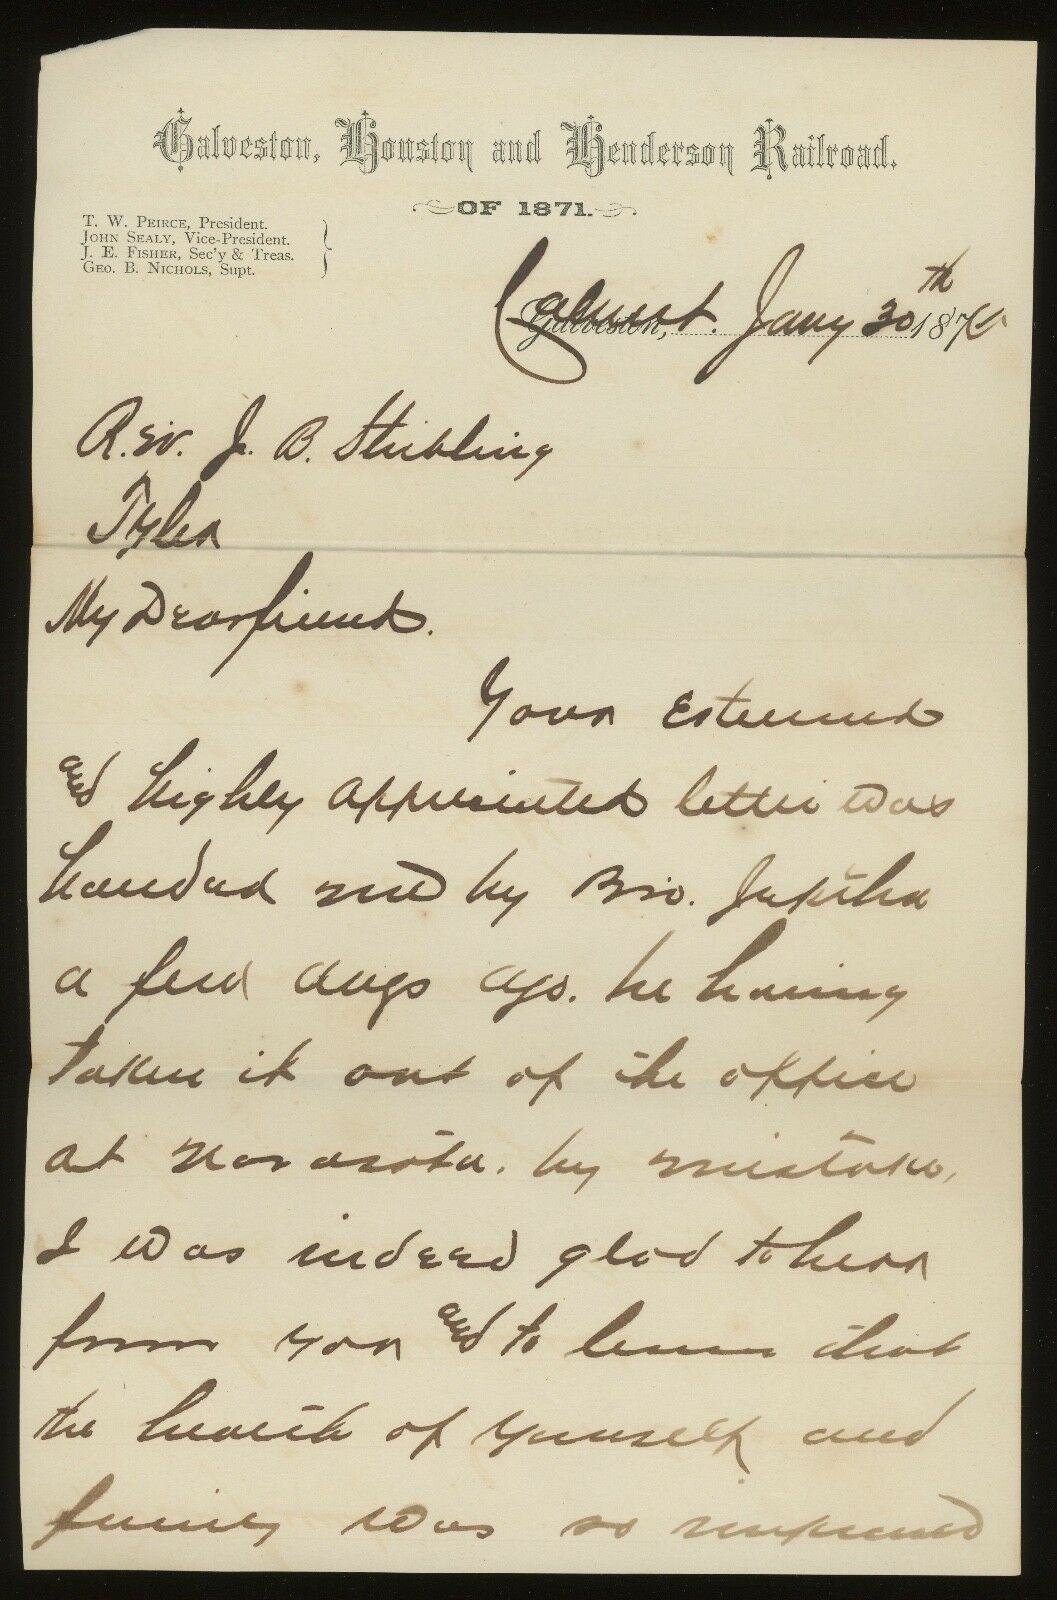 Galveston, Houston and Henderson Railroad.
OF 1871.
T. W. PEIRCE, President.
JOHN SEALY, Vice-President.
J. E. FISHER, Sec'y & Treas.
GEO. B. NICHOLS, Supt.
Galveston,
Calvert. Jany 30th 187
Rev. J. B. Stribling
Tyler
My Dear friend.
Your Esteemed
and highly appreciated letter was
handed me by Bro.
a few days ago. he having
taken it out of the office
at Navasota. by mistake,
I was indeed glad to hear
from you and to learn that
the health of yourself and
family was so improved